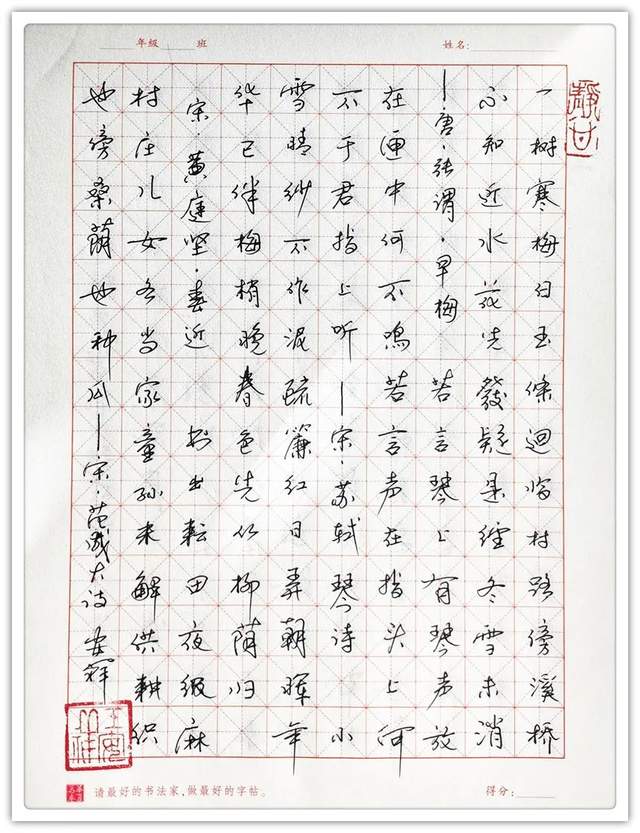 年级 班 姓名:
一树寒梅白玉條迴临村路傍溪桥
不知近水花先發疑是经冬雪未消
—唐·张谓·早梅 若言琴上有琴声放
在匣中何不鸣若言声在指头上何
不于君指上听—宋·苏轼琴诗 小
雪晴纱不作泥疏簾红日弄朝晖年
华已伴梅梢晚春色先从柳荫归
宋·黄庭坚·春近 昼出耘田夜绩麻
村庄儿女各当家童孙未解供耕织
也傍桑荫也种瓜—宋·范成大诗 安辉
请最好的书法家,做最好的字帖。 得分: